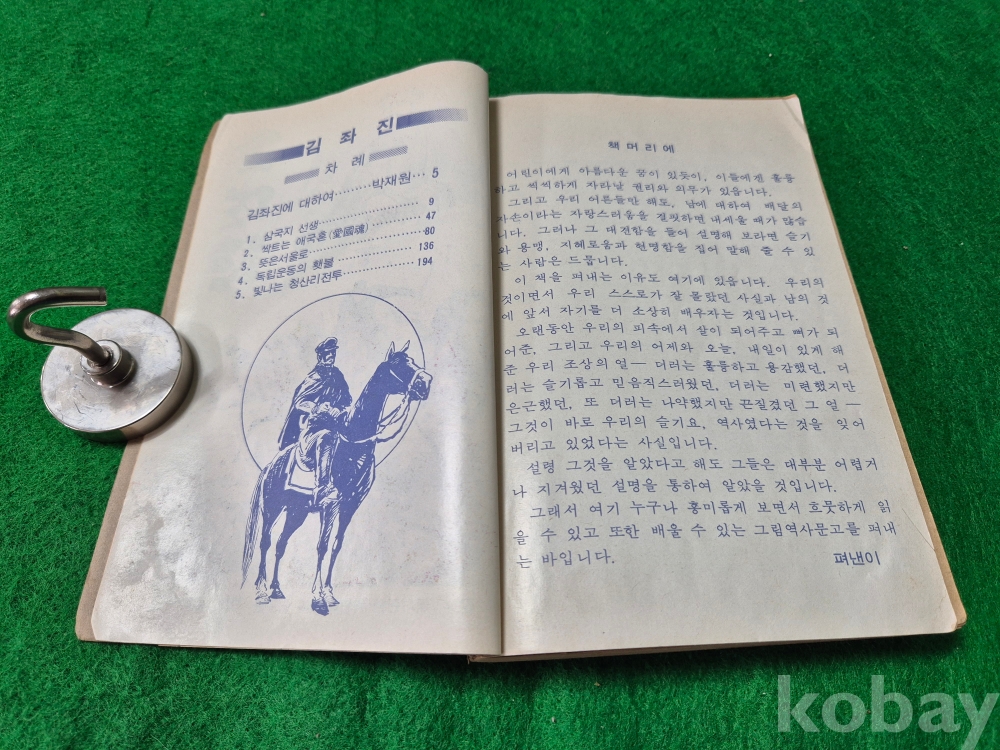 김 좌 진
차 례
김좌진에 대하여………박재원… 5
1. 삼국지 선생……………… 9
2. 싹트는 애국혼(愛國魂)………47
3. 뜻은서울로………………80
4. 독립운동의 횃불……………136
5. 빛나는 청산리전투……………194
책머리에
어린이에게 아름다운 꿈이 있듯이, 이들에겐 훌륭
하고 씩씩하게 자라날 권리와 의무가 있읍니다.
그리고 우리 어른들만 해도, 남에 대하여 배달의
자손이라는 자랑스러움을 걸핏하면 내세울 때가 많습
니다. 그러나 그 대견함을 들어 설명해 보라면 슬기
와 용맹, 지혜로움과 현명함을 집어 말해 줄 수 있
는 사람은 드뭅니다.
이 책을 펴내는 이유도 여기에 있읍니다. 우리의
것이면서 우리 스스로가 잘 몰랐던 사실과 남의 것
에 앞서 자기를 더 소상히 배우자는 것입니다.
오랜동안 우리의 피속에서 살이 되어주고 뼈가 되
어준, 그리고 우리의 어제와 오늘, 내일이 있게 해
준 우리 조상의 얼— 더러는 훌륭하고 용감했던, 더
러는 슬기롭고 믿음직스러웠던, 더러는 미련했지만
은근했던, 또 더러는 나약했지만 끈질겼던 그 얼—
그것이 바로 우리의 슬기요, 역사였다는 것을 잊어
버리고 있었다는 사실입니다.
설령 그것을 알았다고 해도 그들은 대부분 어렵거
나 지겨웠던 설명을 통하여 알았을 것입니다.
그래서 여기 누구나 흥미롭게 보면서 흐뭇하게 읽
을 수 있고 또한 배울 수 있는 그림역사문고를 펴내
는 바입니다. 펴낸이
kobay